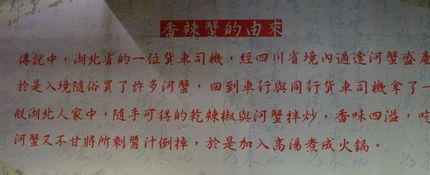 香辣蟹的由來
傳說中，湖北省的一位貨車司機，經四川省境內適逢河蟹盛產
於是入境隨俗買了許多河蟹，回到車行與同行貨車司機拿了一
般湖北人家中，隨手可得的乾辣椒與河蟹拌炒，香味四溢，吃
河蟹又不甘將所剩醬汁倒掉，於是加入高湯煮成火鍋。